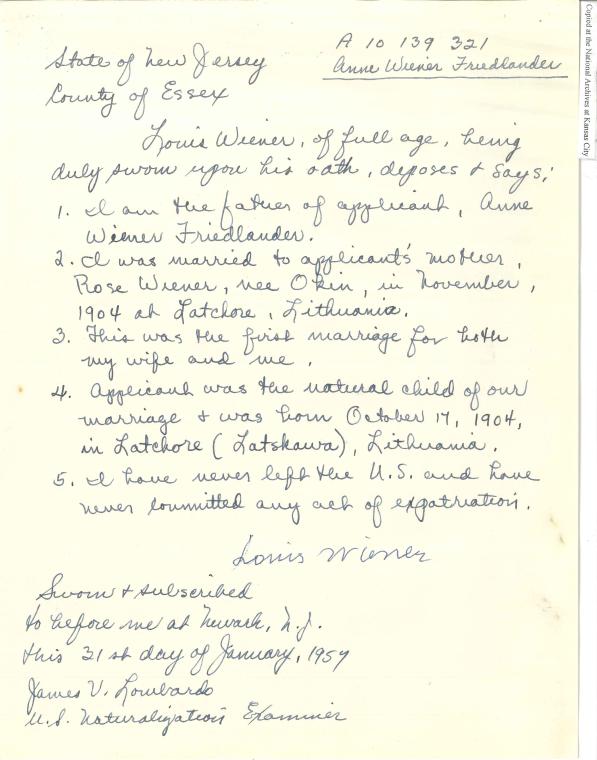 Copied at the National Archives at Kansas City
A 10 139 321
Anne Wiener Friedlander
State of New Jersey
County of Essex
Louis Wiener, of full age, being
duly sworn upon his oath, deposes & says:
1. I am the father of applicant, Anne
Wiener Friedlander.
2. I was married to applicant's mother,
Rose Wiener, nee Okin, in November,
1904 at Latchore, Lithuania.
3. This was the first marriage for both
my wife and me.
4. Applicant was the natural child of our
marriage & was born October 17, 1904,
in Latchore (Latskawa), Lithuania.
5. I have never left the U.S. and have
never committed any act of expatriation.
Louis Wiener
Sworn & subscribed
to before me at Newark, N.J.
this 31st day of January, 1957
James V. Lombardo
U.S. Naturalization Examiner